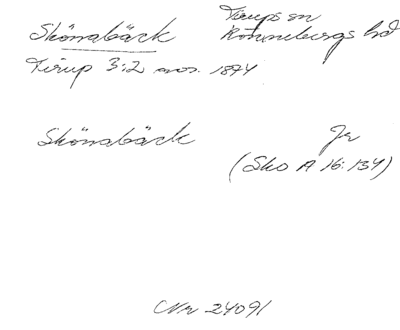 Skönabäck Tirups sn
Rönnebergs hd
Tirup 3:2 mos. 1874
Skönabäck Jr
(Sko A 16:134)
Nr 24091